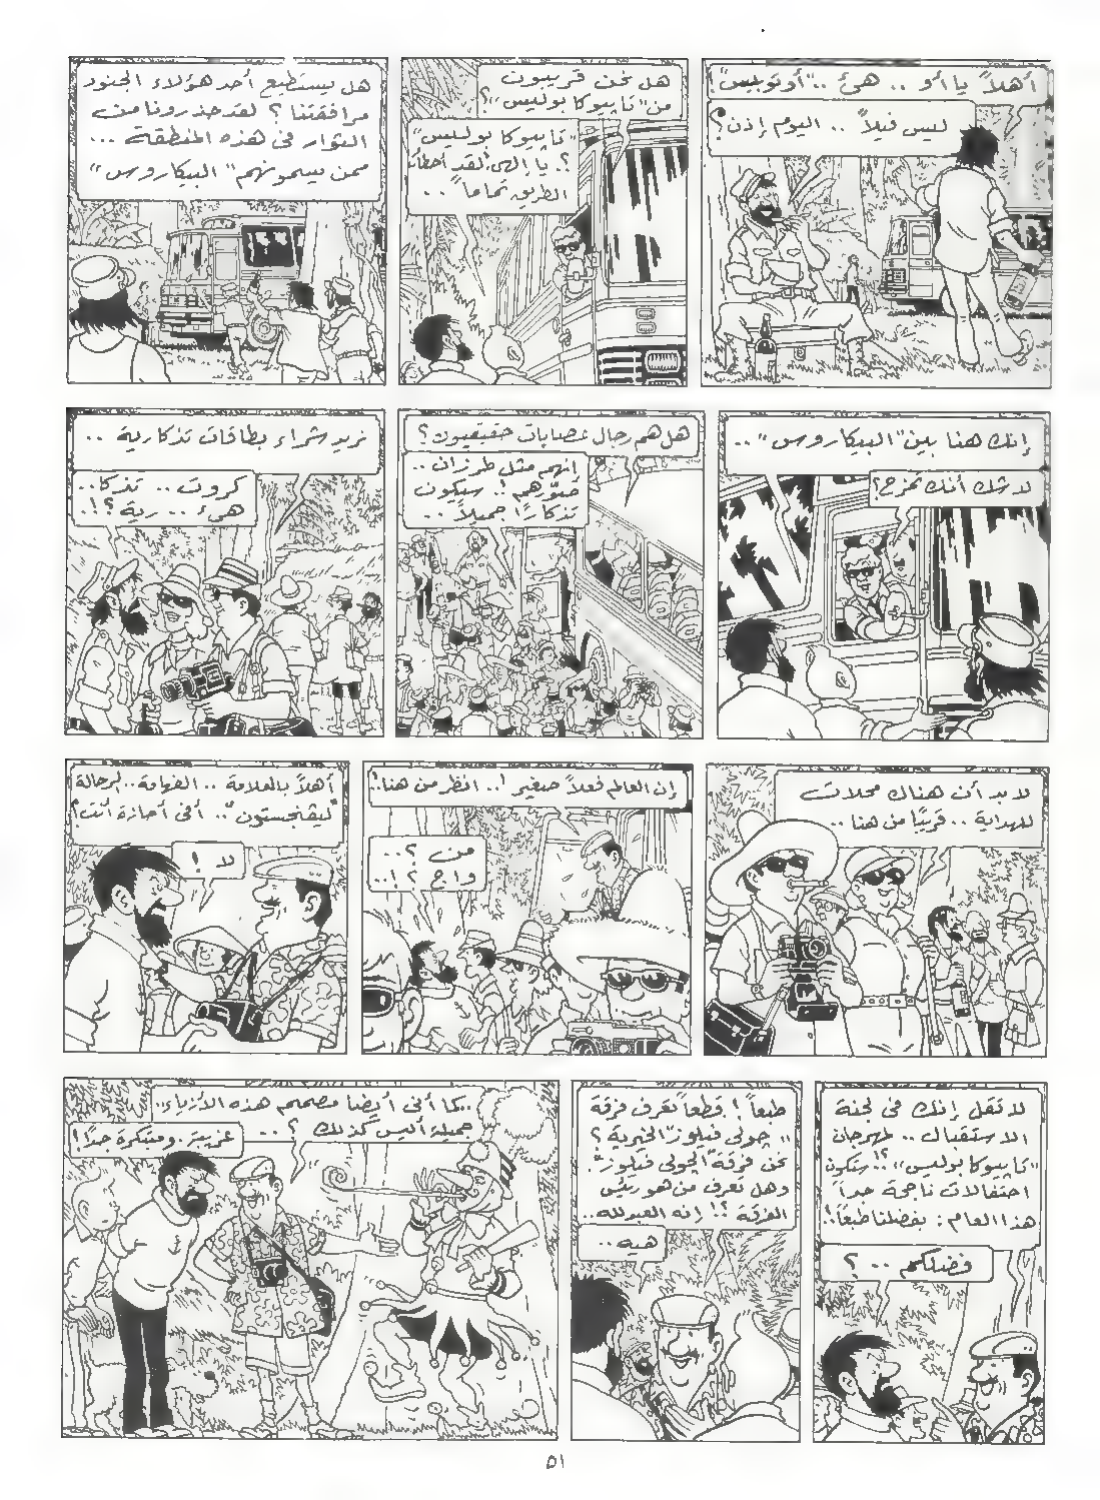 أهلاً يا أو .. هئ .. "أوتوبيس"!
ليس فيلاً .. اليوم إذن؟
هل نحن قريبون
من "تابيوكا بوليس"؟
"تابيوكا بوليس"
؟.. يا إلهى، لقد أخطأت
الطريق تماماً ..
هل يستطيع أحد هؤلاء الجنود
مرافقتنا؟ لقد حذرونا من
الثوار فى هذه المنطقة ...
ممن يسمونهم "البيكاروس"
إنك هنا بين "البيكاروس" ..
لا شك أنك تمزح؟
هل هم رجال عصابات حقيقيون؟
إنهم مثل طرزان ..
صوّرهم! .. سيكون
تذكارًا جميلاً ..
نريد شراء بطاقات تذكارية ..
كروت .. تذكا ..
هئ .. رية؟!.
لا بد أن هناك محلات
للهداية .. قريبًا من هنا ..
إن العالم فعلاً صغير!.. انظر من هنا!
من ؟..
واج ؟!..
أهلاً بالعلامة .. الفهامة .. لرحالة
"ليڤنجستون" .. أفى أجازة أنت؟
لا !
لا تقل إنك فى لجنة
الاستقبال .. لمهرجان
"تابيوكا بوليس"؟! .. ستكون
احتفالات ناجحة جداً
هذا العام: بفضلنا طبعاً!
فضلكم .. ؟
طبعاً! قطعاً تعرف فرقة
"چولى فيلوز" الخيرية؟
نحن فرقة "الچولى فيلوز".
وهل تعرف من هو رئيس
الفرقة؟! إنه العبدلله ..
هيه ..
.. كما أنى أيضا مصمم هذه الأزياء ..
جميلة أليس كذلك ؟ ..
غريبة .. ومبتكرة جداً!
٥١